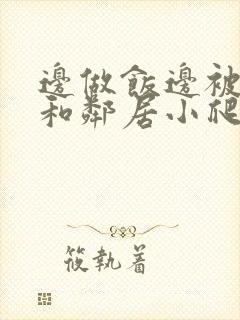 邊做飯邊被
和鄰居小爬
筱執着